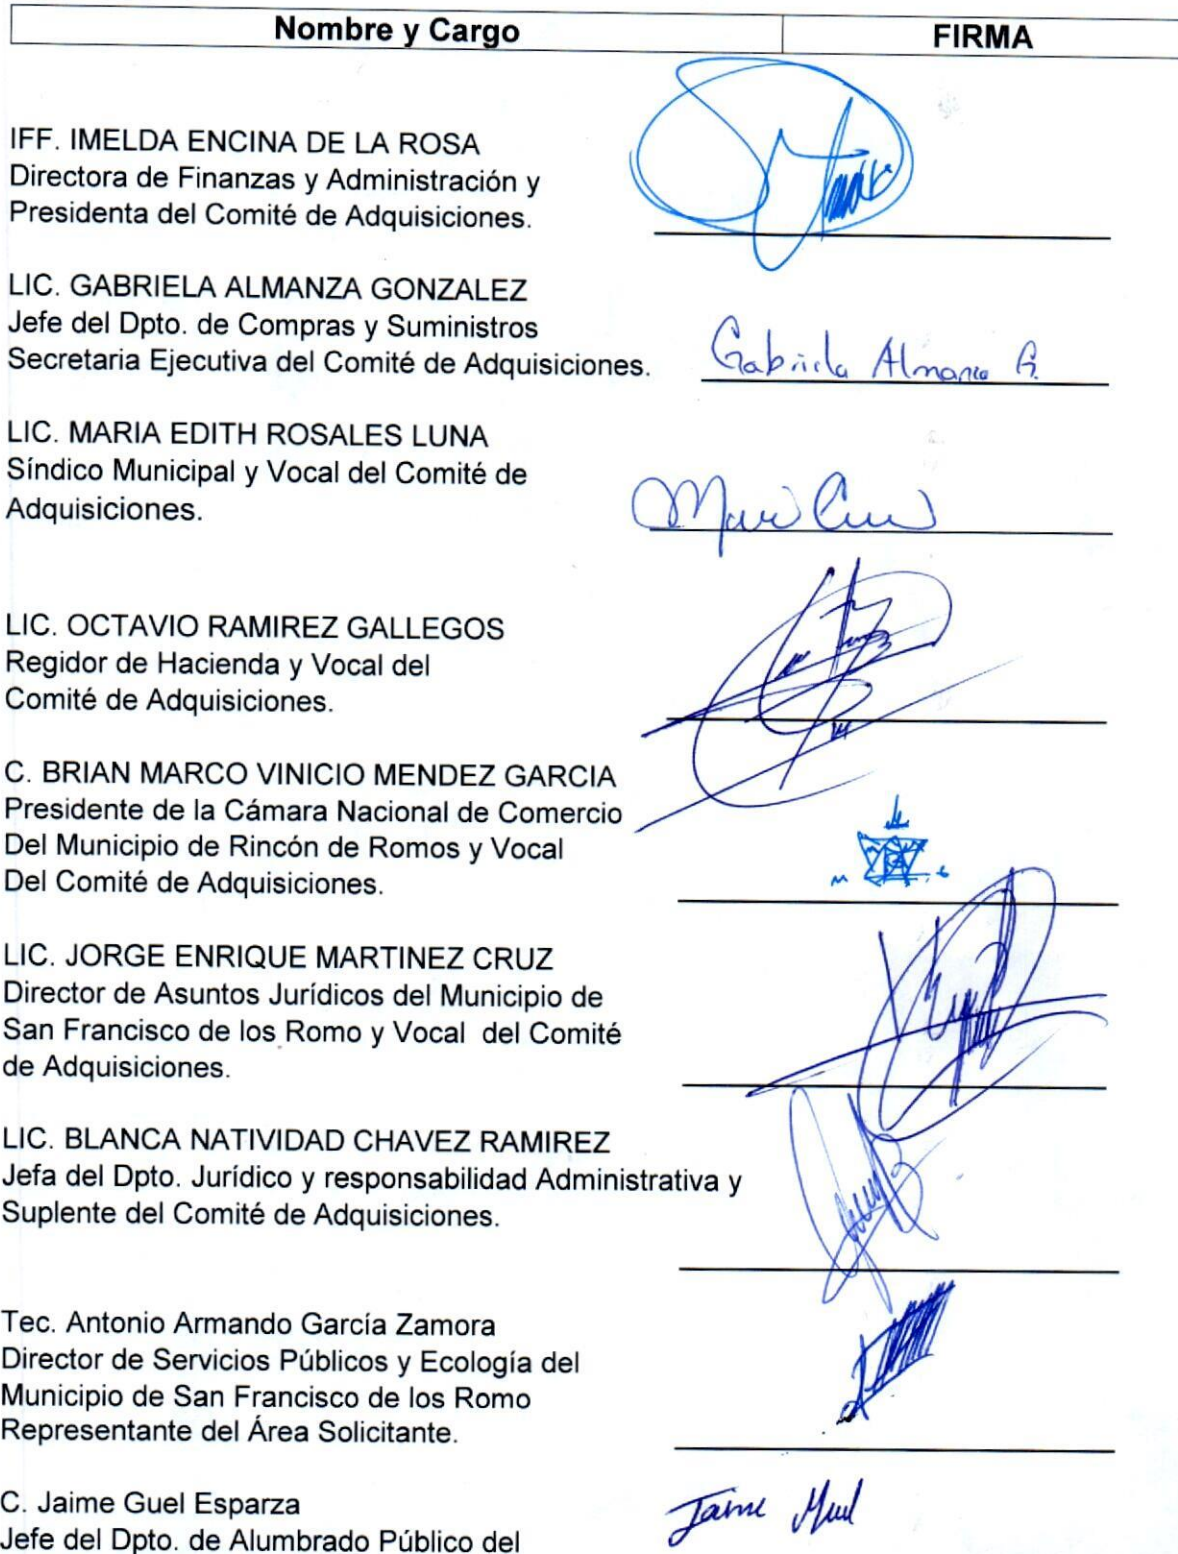 Nombre y Cargo FIRMA
IFF. IMELDA ENCINA DE LA ROSA
Directora de Finanzas y Administración y
Presidenta del Comité de Adquisiciones.
LIC. GABRIELA ALMANZA GONZALEZ
Jefe del Dpto. de Compras y Suministros
Secretaria Ejecutiva del Comité de Adquisiciones.
Gabriela Almanza G.
LIC. MARIA EDITH ROSALES LUNA
Síndico Municipal y Vocal del Comité de
Adquisiciones.
LIC. OCTAVIO RAMIREZ GALLEGOS
Regidor de Hacienda y Vocal del
Comité de Adquisiciones.
C. BRIAN MARCO VINICIO MENDEZ GARCIA
Presidente de la Cámara Nacional de Comercio
Del Municipio de Rincón de Romos y Vocal
Del Comité de Adquisiciones.
LIC. JORGE ENRIQUE MARTINEZ CRUZ
Director de Asuntos Jurídicos del Municipio de
San Francisco de los Romo y Vocal del Comité
de Adquisiciones.
LIC. BLANCA NATIVIDAD CHAVEZ RAMIREZ
Jefa del Dpto. Jurídico y responsabilidad Administrativa y
Suplente del Comité de Adquisiciones.
Tec. Antonio Armando García Zamora
Director de Servicios Públicos y Ecología del
Municipio de San Francisco de los Romo
Representante del Área Solicitante.
C. Jaime Guel Esparza
Jaime
Jefe del Dpto. de Alumbrado Público del